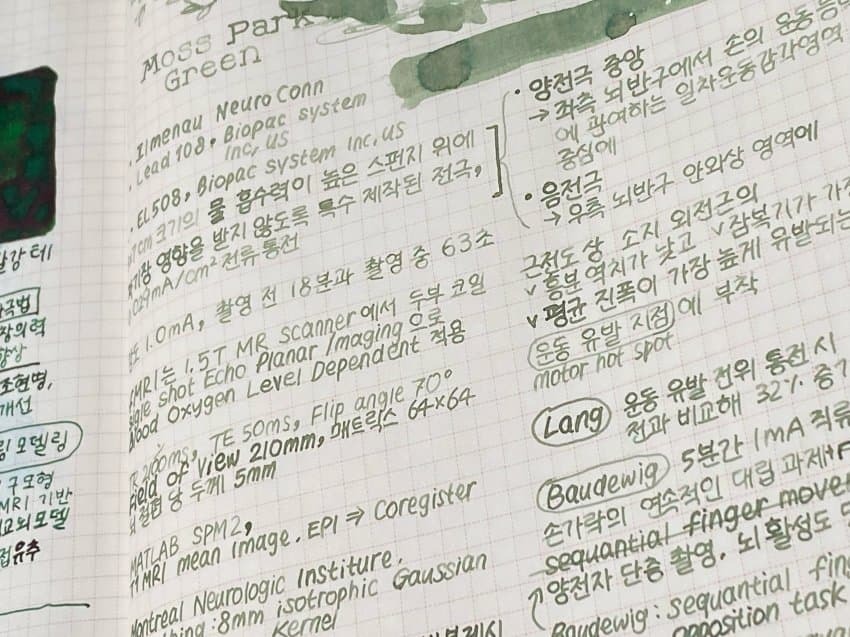 Moss Park
Green
· Ilmenau NeuroConn
· Lead 108, Biopac system
Inc, US
· EL508, Biopac system Inc, US
크기의 물 흡수력이 높은 스펀지 위에
영향을 받지 않도록 특수 제작된 전극,
029mA/cm² 전류 통전
1.0mA, 촬영 전 18분과 촬영 중 63초
MRI는 1.5T MR scanner에서 두부 코일
shot Echo Planar Imaging으로
Blood Oxygen Level Dependent 적용
TE 50ms, Flip angle 70°
Field of View 210mm, 매트릭스 64×64
절편 당 두께 5mm
MATLAB SPM2,
MRI mean image. EPI ⇒ Coregister
Montreal Neurologic Institure,
thing: 8mm isotrophic Gaussian
Kernel
· 양전극 중앙
→ 좌측 뇌반구에서 손의 운동
에 관여하는 일차운동감각영역
중심에
· 음전극
→ 우측 뇌반구 안와상 영역에
근전도 상 소지 외전근의
∨ 흥분 역치가 낮고 ∨ 잠복기가
∨ 평균 진폭이 가장 높게 유발되는
운동 유발 지점에 부착
motor hot spot
Lang 운동 유발 전위 통전 시
전과 비교해 32%
Baudewig 5분간 1mA 직류
손가락의 연속적인 대립 과제+
sequantial finger
↑양전자 단층 촬영. 뇌 활성도
Baudewig: sequantial
opposition task
갈강테
장의력
향상
조현병,
개선
링 모델링
구모형
MRI 기반
뇌모델
접유추